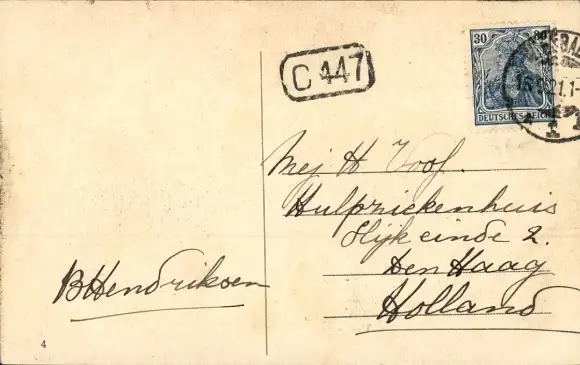 C 447
30 30
DEUTSCHES REICH
Mej H Voof.
Hulpziekenhuis
Slijkeinde 2.
Den Haag
Holland
BHendriksen
4